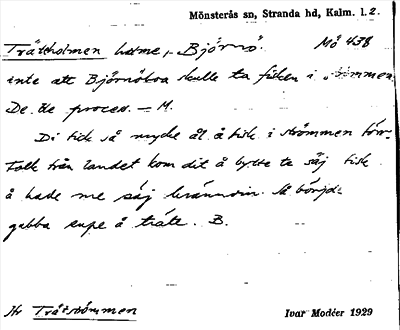 Mönsterås sn, Stranda hd, Kalm. l. 2.
Trätholmen holme, - Björnö. Mö 438
inte att Björnöboa skulle ta fisken i strömmen.
De ble process. — M.
Di tick så mycke ål å fisk i strömmen förr.
Folk från landet kom dit å bytte te säj fisk
å hade me säj brännvin. Så börjd-
gubba supe å träte. B.
Hr Trätströmmen
Ivar Modéer 1929